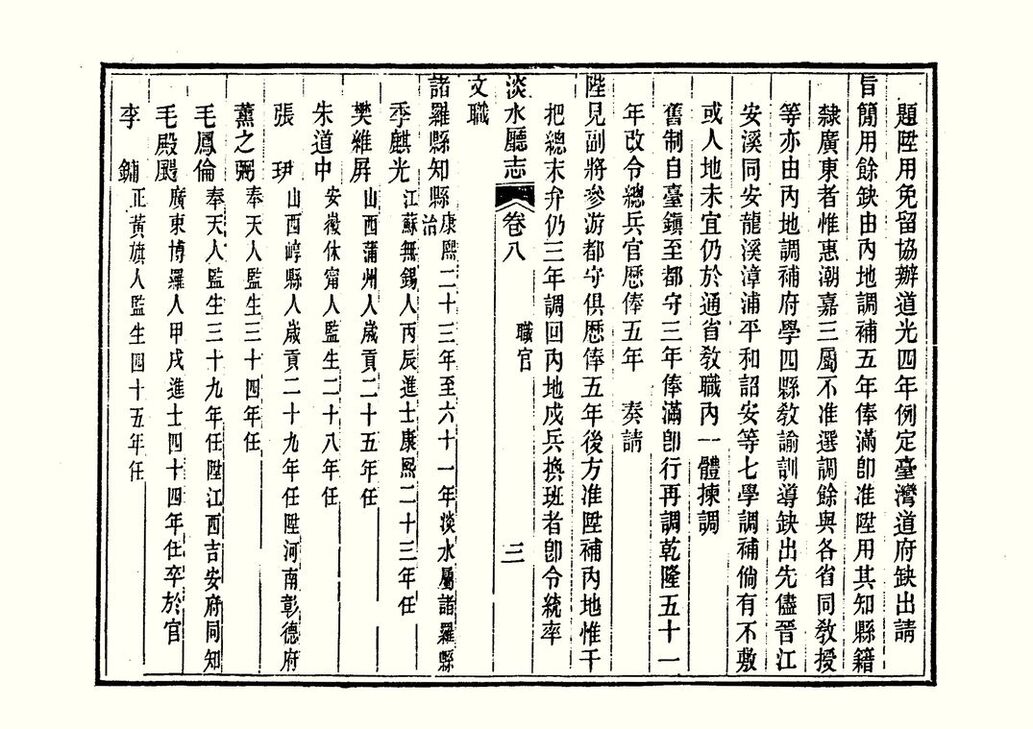 題陞用免留協辦道光四年例定臺灣道府缺出請
旨簡用餘缺由內地調補五年俸滿卽准陞用其知縣籍
隸廣東者惟惠潮嘉三屬不准選調餘與各省同敎授
等亦由內地調補府學四縣敎諭訓導缺出先儘晉江
安溪同安龍溪漳浦平和詔安等七學調補倘有不敷
或人地未宜仍於通省敎職內一體揀調
舊制自臺鎭至都守三年俸滿卽行再調乾隆五十一
年改令總兵官歷俸五年　奏請
陞見副將參游都守俱歷俸五年後方准陞補內地惟千
把總末弁仍三年調回內地戍兵換班者卽令統率
淡水廳志　卷八　職官　三
文職
諸羅縣知縣康熙二十三年至六十一年淡水屬諸羅縣治
季麒光　江蘇無錫人丙辰進士康熙二十三年任
樊維屏　山西蒲州人歲貢二十五年任
朱道中　安徽休甯人監生二十八年任
張　　　山西崞縣人歲貢二十九年任陞河南彰德府
薰之弼　奉天人監生三十四年任
毛鳳倫　奉天人監生三十九年任陞江西吉安府同知
毛殿颺　廣東博羅人甲戌進士四十四年任卒於官
李　鏞　正黃旗人監生四十五年任